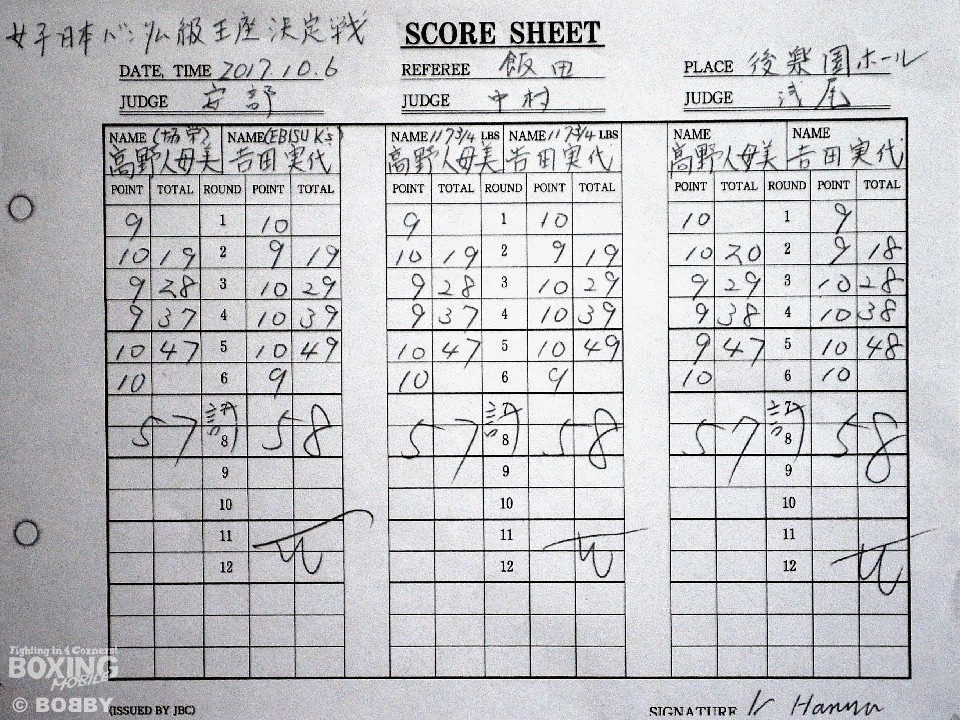 女子日本バンタム級王座決定戦
SCORE SHEET
DATE, TIME 2017.10.6 REFEREE 飯田 PLACE 後楽園ホール
JUDGE 安部 JUDGE 中村 JUDGE 浅尾
NAME (協栄) NAME (EBISU K's) NAME 117 3/4 LBS NAME 117 3/4 LBS NAME NAME
高野人母美 吉田実代 高野人母美 吉田実代 高野人母美 吉田実代
POINT TOTAL ROUND POINT TOTAL POINT TOTAL ROUND POINT TOTAL POINT TOTAL ROUND POINT TOTAL
9 1 10 9 1 10 10 1 9
10 19 2 9 19 10 19 2 9 19 10 20 2 9 18
9 28 3 10 29 9 28 3 10 29 9 29 3 10 28
9 37 4 10 39 9 37 4 10 39 9 38 4 10 38
10 47 5 10 49 10 47 5 10 49 9 47 5 10 48
10 6 9 10 6 9 10 6 10
7 7 7
57 8 58 57 8 58 57 8 58
9 9 9
10 10 10
11 11 11
12 12 12
Fighting in 4 Corners!
BOXING
MOBILE
© BOBBY
(ISSUED BY JBC) SIGNATURE